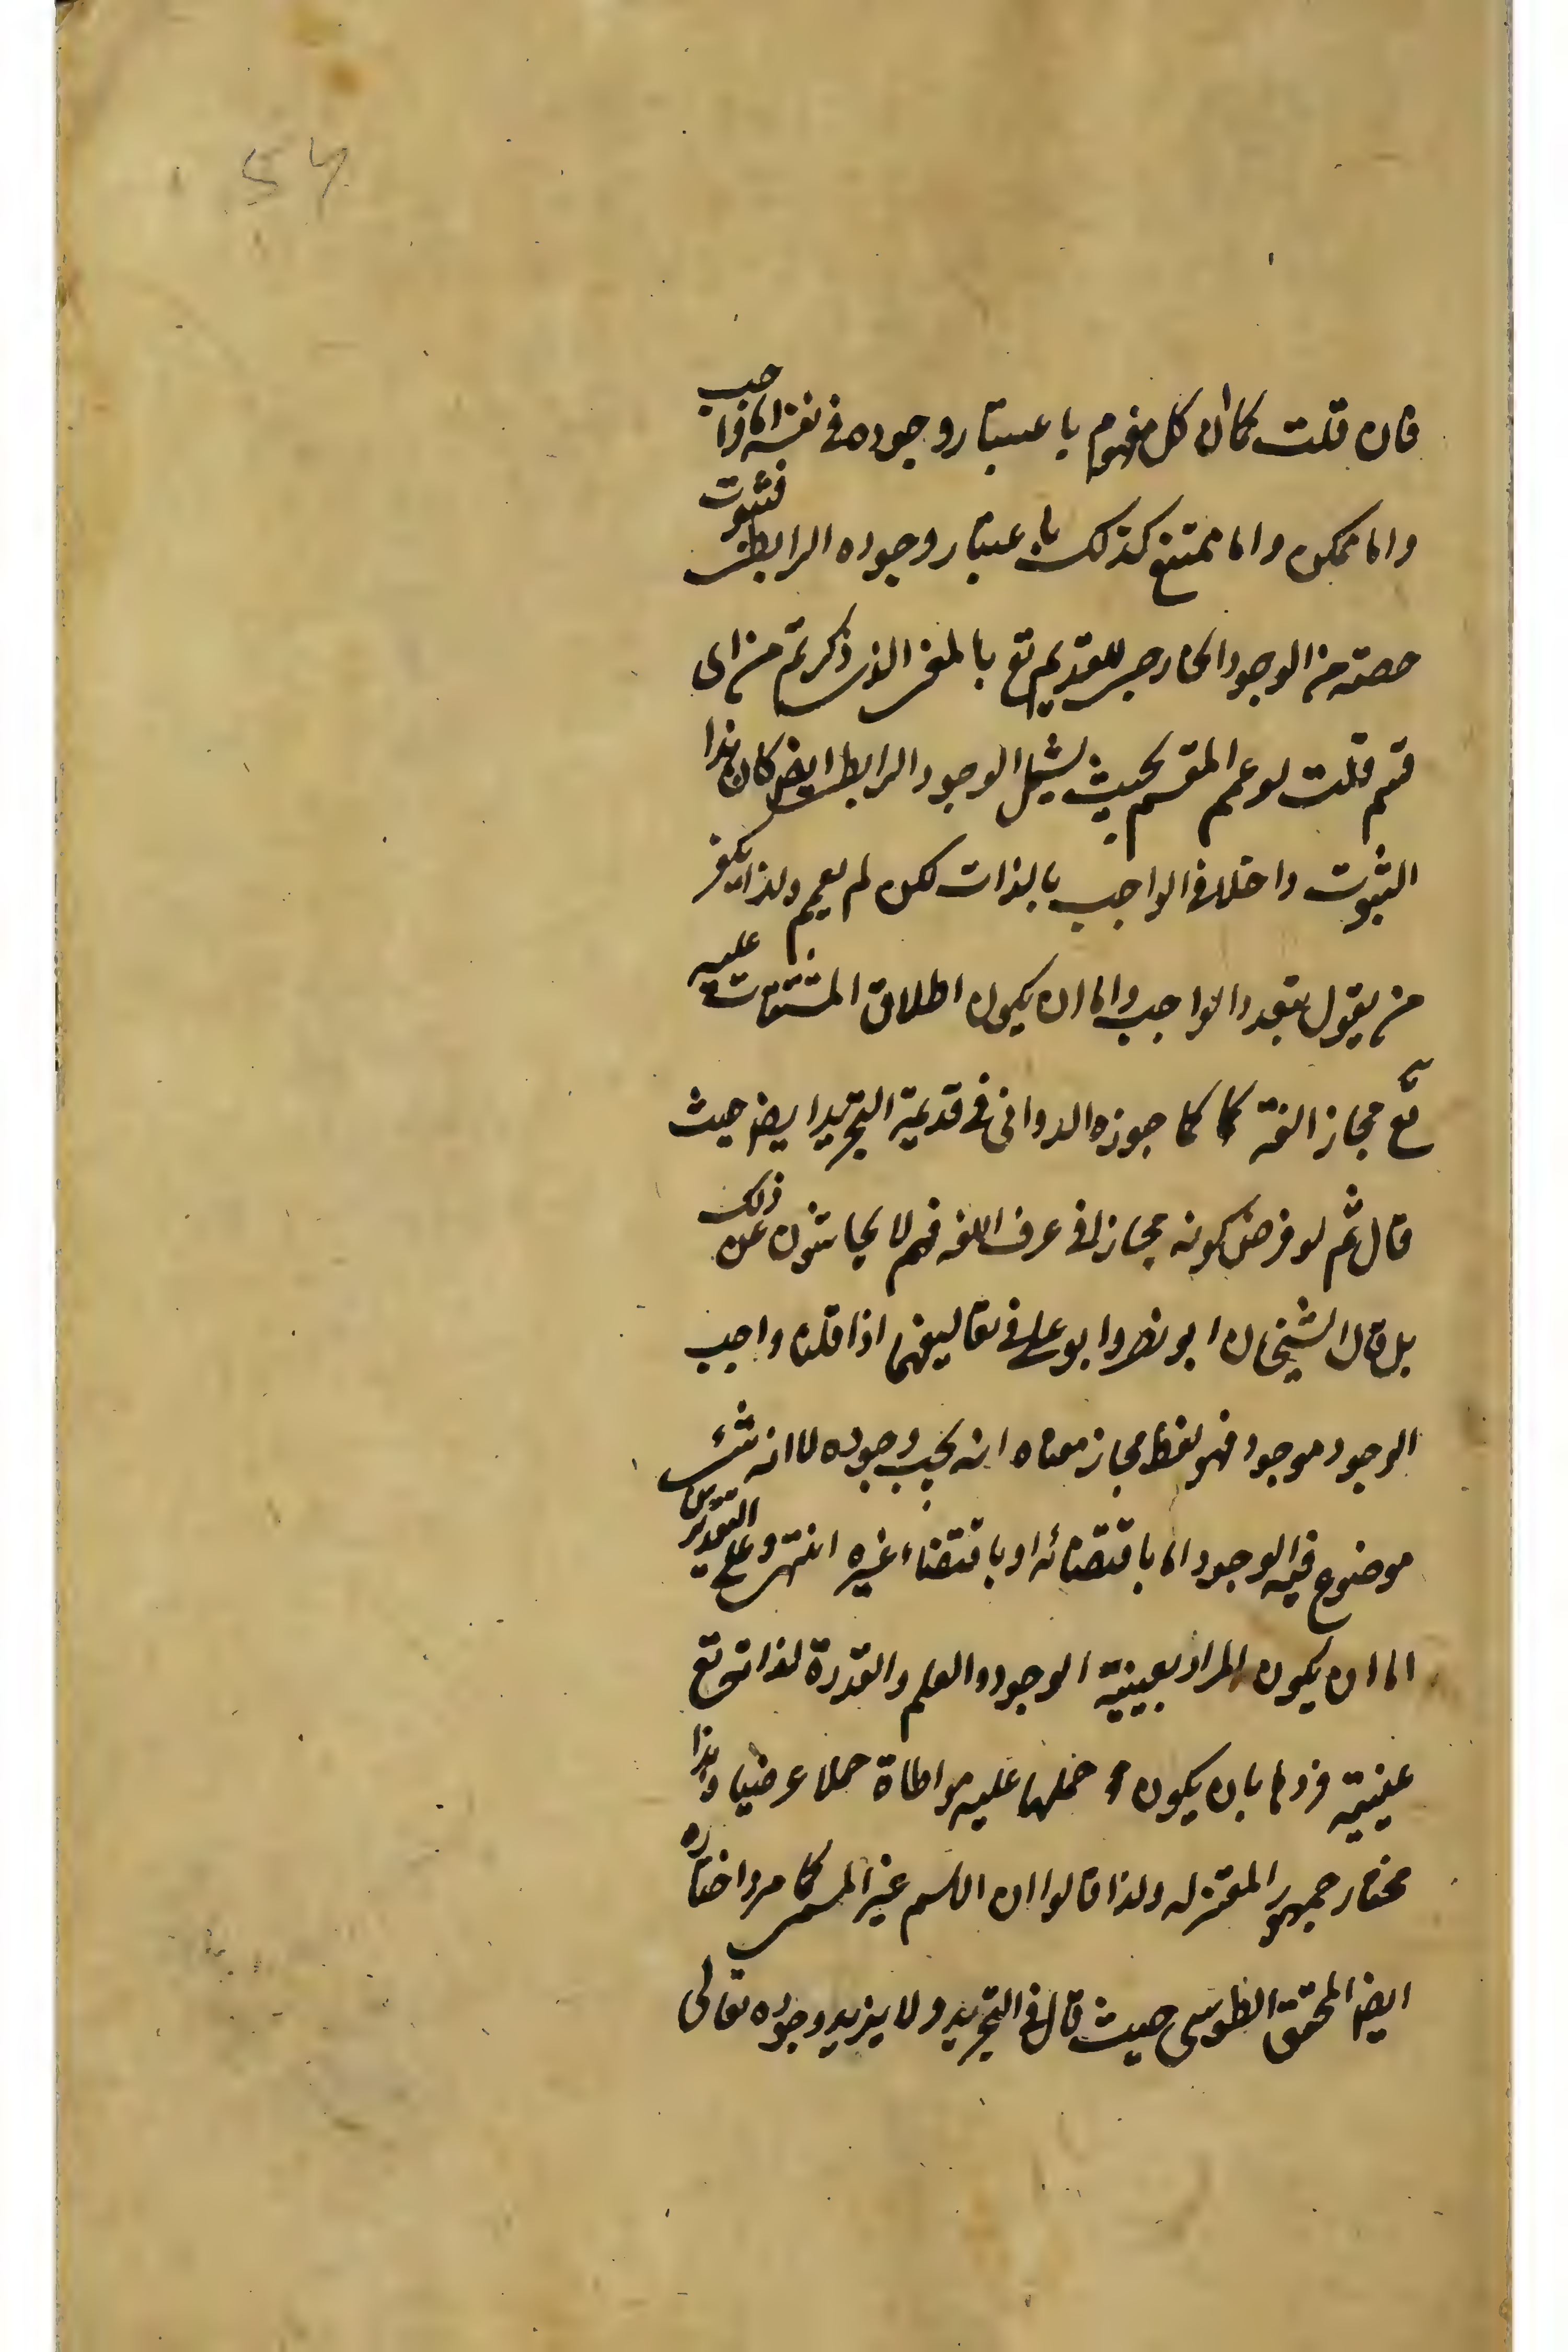 54
فان قلت كما ان كل مفهوم باعتبار وجوده في نفسه اما واجب
واما ممكن واما ممتنع كذلك باعتبار وجوده الرابطى فثبوت
حصته من الوجود الخارجى للقديم تع بالمعنى الذى ذكرتم من اى
قسم قلت لو عمم المقسم بحيث يشمل الوجود الرابطى ايض كان هذا
الثبوت داخلا فى الواجب بالذات لكن لم يعمم ولذا يكفر
من يقول بتعدد الواجب واما ان يكون اطلاق المشتقات عليه
تع مجاز الغة كما كما جوزه الدوانى فى قديمة التجريد ايض حيث
قال ثم لو فرض كونه مجازا فى عرف اللغه فهم لا يحاشون عن ذلك
بل قال الشيخان ابو نصر وابو على فى تعاليقهما اذا قلنا واجب
الوجود موجود فهو لفظ مجاز معناه انه يجب وجوده لا انه شئ
موضوع فيه الوجود اما باقتضائه او باقتضاء غيره انتهى وعلى التقديرين
اما ان يكون المراد بعينية الوجود والعلم والقدرة لذاته تع
عينية فردها بان يكون حملها عليه مواطاة حملا عرضيا وهذا
مختار جمهور المعتزله ولذا قالوا ان الاسم غير المسمى كما مر واختاره
ايض المحقق الطوسى حيث قال فى التجريد ولا يزيد وجوده تعالى